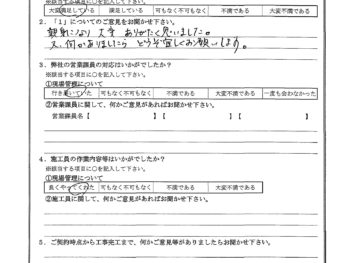 ※該当する項目に○を記入して下さい。
大変満足している 満足している 可もなく不可もなく 不満である 大変不満である
2．「1」についてのご意見をお聞かせ下さい。
親切になり 大変 ありがたく思いました。
又、何かありましたら どうぞ宜しくお願いします。
3．弊社の営業課員の対応はいかがでしたか？
※該当する項目に○を記入して下さい。
①現場管理について
行き届いていた 可もなく不可もなく 不満である 大変不満である 一度も会わなかった
②営業課員に関して、何かご意見があればお聞かせ下さい。
営業課員名【 】【 】【 】
4．施工員の作業内容等はいかがでしたか？
※該当する項目に○を記入して下さい。
①現場管理について
良くやってくれた 可もなく不可もなく 不満である 大変不満である
②施工員に関して、何かご意見があればお聞かせ下さい。
5．ご契約時点から工事完工まで、何かご意見等がありましたらお聞かせ下さい。